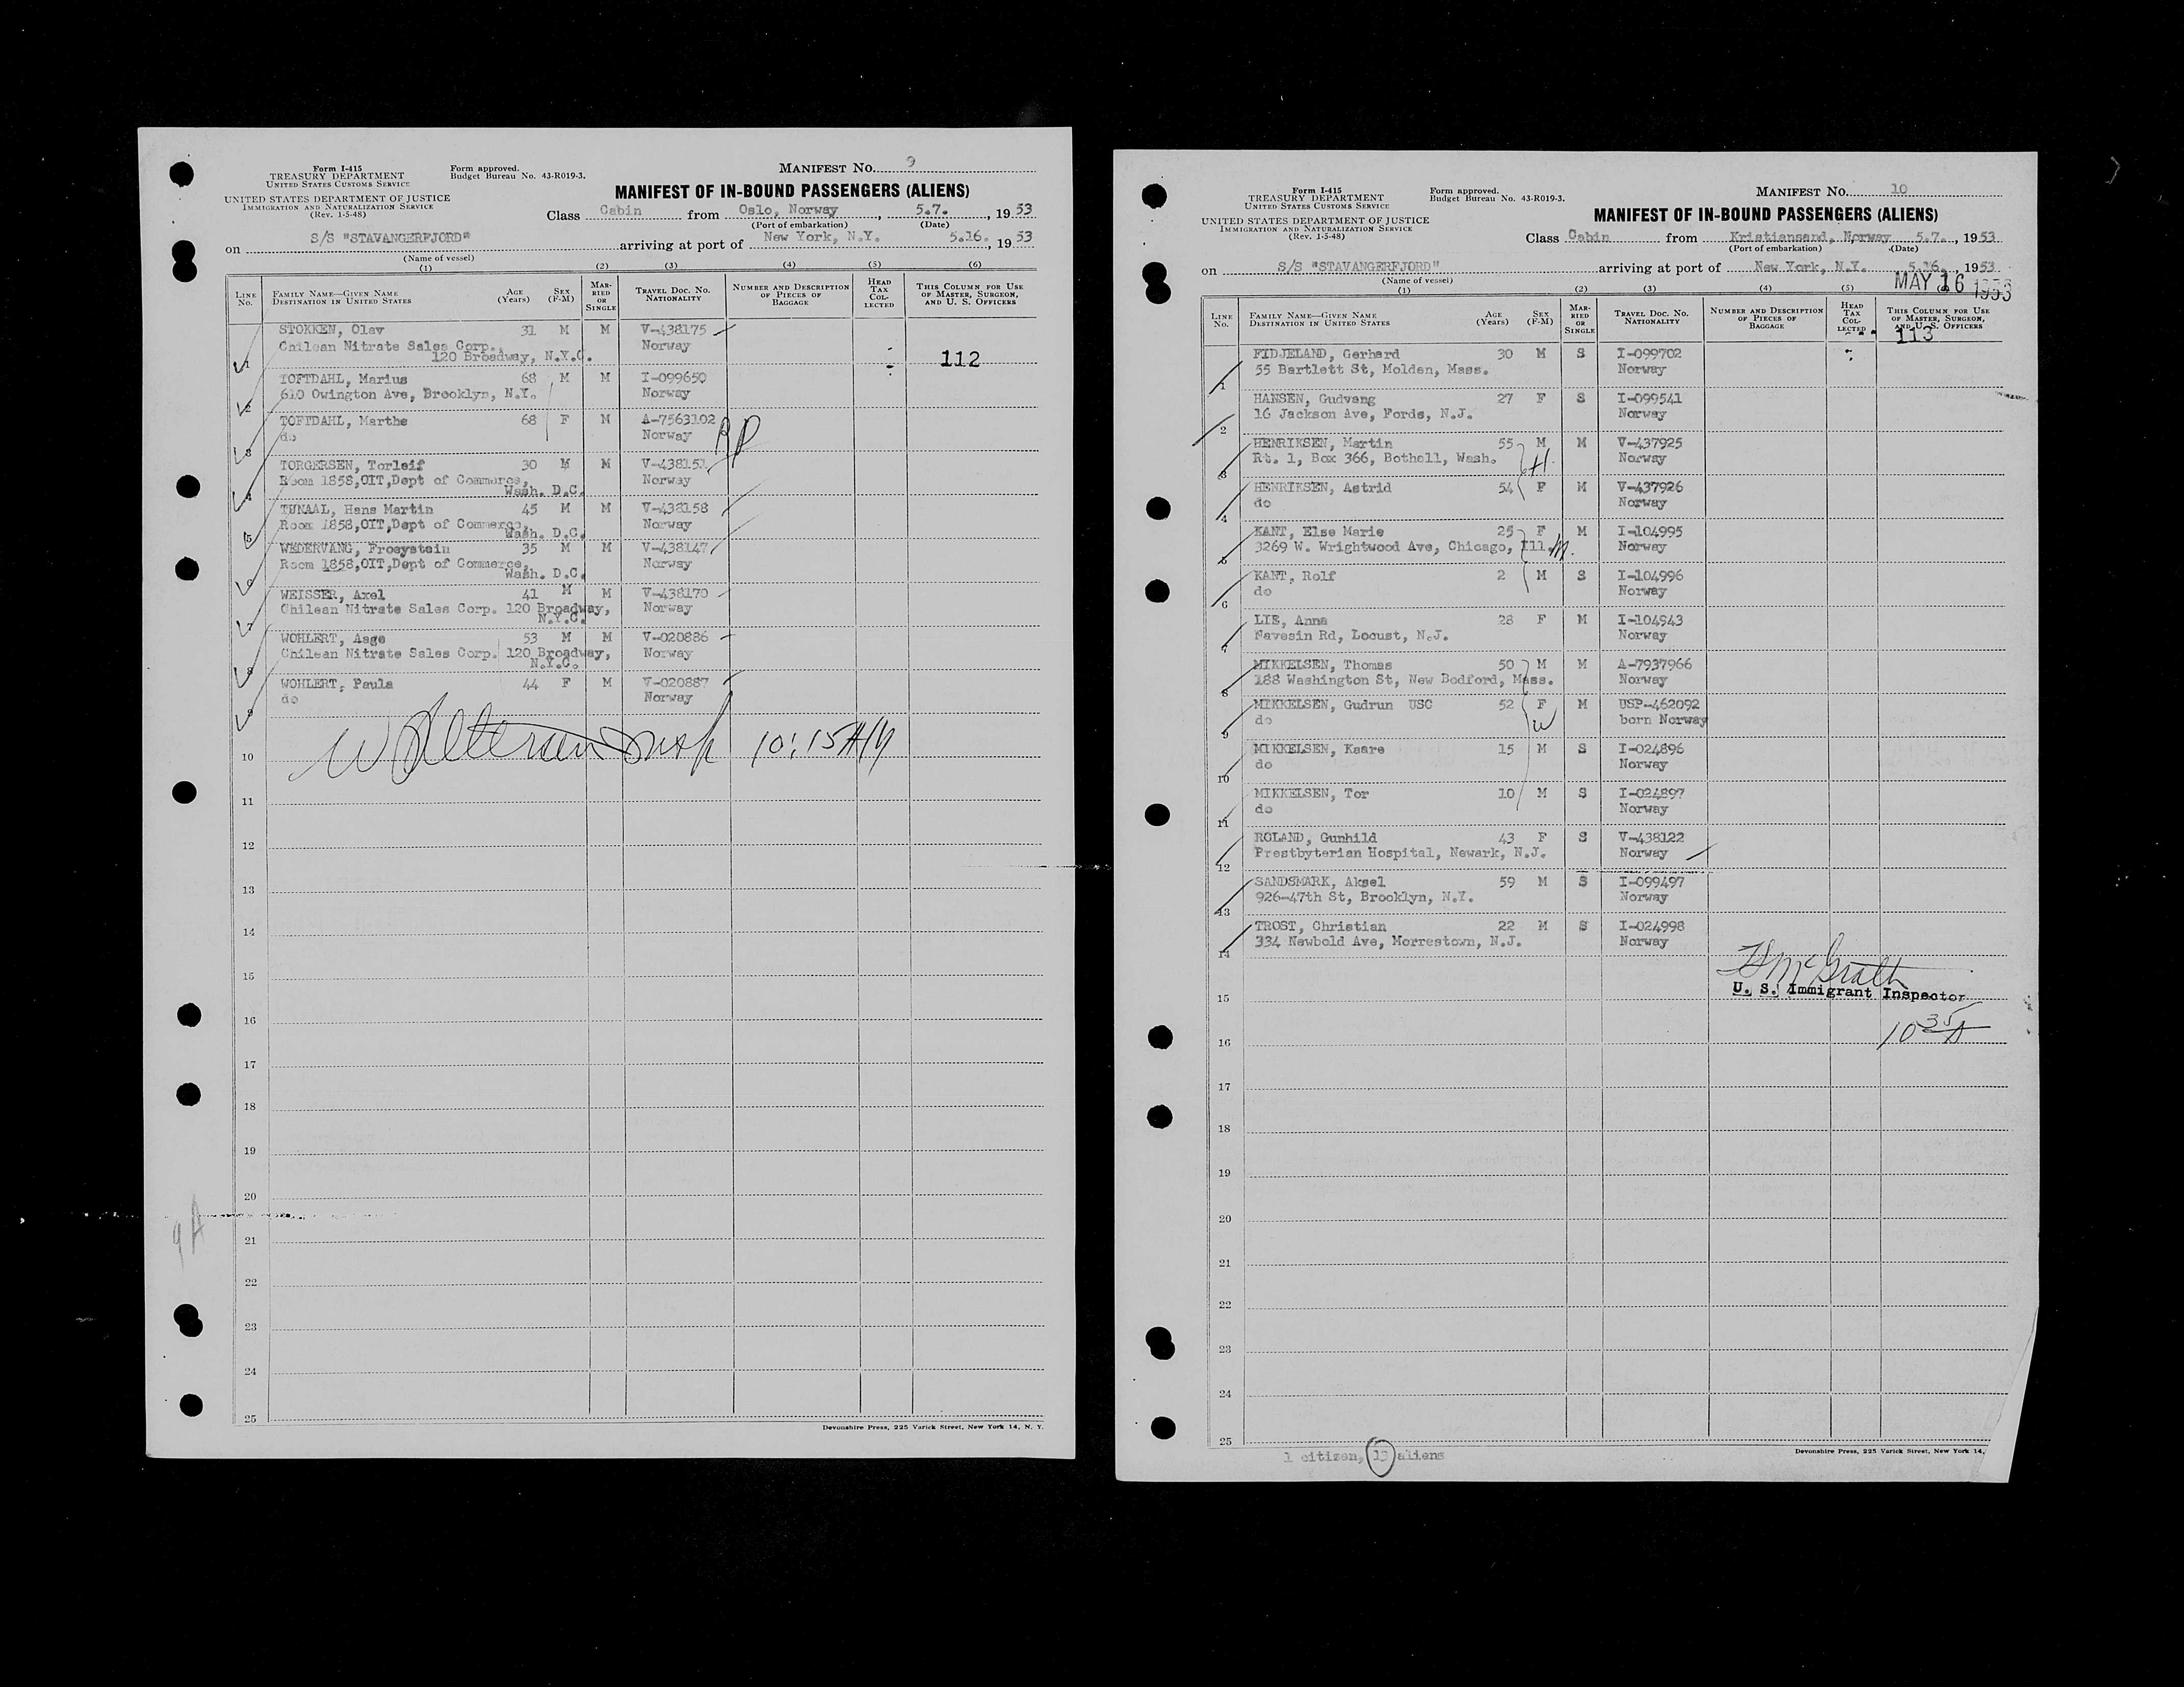 Form I-415
TREASURY DEPARTMENT
UNITED STATES CUSTOMS SERVICE
UNITED STATES DEPARTMENT OF JUSTICE
IMMIGRATION AND NATURALIZATION SERVICE
(Rev. 1-5-48)
Form approved.
Budget Bureau No. 43-R019-3.
MANIFEST No. 9
MANIFEST OF IN-BOUND PASSENGERS (ALIENS)
Class Cabin from Oslo, Norway, 5.7., 1953
(Port of embarkation) (Date)
on S/S "STAVANGERFJORD" arriving at port of New York, N.Y. 5.16., 1953
(Name of vessel)
(1) (2) (3) (4) (5) (6)
LINE No. FAMILY NAME—GIVEN NAME DESTINATION IN UNITED STATES AGE (Years) SEX (F-M) MARRIED OR SINGLE TRAVEL DOC. NO. NATIONALITY NUMBER AND DESCRIPTION OF PIECES OF BAGGAGE HEAD TAX COLLECTED THIS COLUMN FOR USE OF MASTER, SURGEON, AND U. S. OFFICERS
STOKKEN, Olav 31 M M V-438175
Chilean Nitrate Sales Corp., Norway
1 120 Broadway, N.Y.C. 112
TOFTDAHL, Marius 68 M M I-099650
2 610 Owington Ave, Brooklyn, N.Y. Norway
TOFTDAHL, Marthe 68 F M A-7563102
3 do Norway
TORGERSEN, Torleif 30 M M V-438151
Room 1858,OIT,Dept of Commerce, Norway
4 Wash. D.C.
TUNAAL, Hans Martin 45 M M V-438158
Room 1858,OIT,Dept of Commerce, Norway
5 Wash. D.C.
WEDERVANG, Froeystein 35 M M V-438147
Room 1858,OIT,Dept of Commerce, Norway
6 Wash. D.C.
WEISSER, Axel 41 M M V-438170
Chilean Nitrate Sales Corp. 120 Broadway, Norway
7 N.Y.C.
WOHLERT, Aage 53 M M V-020886
Chilean Nitrate Sales Corp. 120 Broadway, Norway
8 N.Y.C.
WOHLERT, Paula 44 F M V-020887
9 do Norway
10 10:15 AM
11
12
13
14
15
16
17
18
19
20
21
22
23
24
25
9A
Devonshire Press, 225 Varick Street, New York 14, N. Y.
Form I-415
TREASURY DEPARTMENT
UNITED STATES CUSTOMS SERVICE
UNITED STATES DEPARTMENT OF JUSTICE
IMMIGRATION AND NATURALIZATION SERVICE
(Rev. 1-5-48)
Form approved.
Budget Bureau No. 43-R019-3.
MANIFEST No. 10
MANIFEST OF IN-BOUND PASSENGERS (ALIENS)
Class Cabin from Kristiansand, Norway 5.7., 1953
(Port of embarkation) (Date)
on S/S "STAVANGERFJORD" arriving at port of New York, N.Y. 5.16., 1953
(Name of vessel)
MAY 16 1953
(1) (2) (3) (4) (5)
LINE No. FAMILY NAME—GIVEN NAME DESTINATION IN UNITED STATES AGE (Years) SEX (F-M) MARRIED OR SINGLE TRAVEL DOC. NO. NATIONALITY NUMBER AND DESCRIPTION OF PIECES OF BAGGAGE HEAD TAX COLLECTED THIS COLUMN FOR USE OF MASTER, SURGEON, AND U. S. OFFICERS
113
FIDJELAND, Gerhard 30 M S I-099702
1 55 Bartlett St, Molden, Mass. Norway
HANSEN, Gudvang 27 F S I-099541
2 16 Jackson Ave, Fords, N.J. Norway
HENRIKSEN, Martin 55 M M V-437925
3 Rt. 1, Box 366, Bothell, Wash. Norway
HENRIKSEN, Astrid 54 F M V-437926
4 do Norway
KANT, Else Marie 25 F M I-104995
5 3269 W. Wrightwood Ave, Chicago, Ill. Norway
KANT, Rolf 2 M S I-104996
6 do Norway
LIE, Anna 28 F M I-104943
7 Navesin Rd, Locust, N.J. Norway
MIKKELSEN, Thomas 50 M M A-7937966
8 188 Washington St, New Bedford, Mass. Norway
MIKKELSEN, Gudrun USC 52 F M USP-462092
9 do born Norway
MIKKELSEN, Kaare 15 M S I-024896
10 do Norway
MIKKELSEN, Tor 10 M S I-024897
11 do Norway
ROLAND, Gunhild 43 F S V-438122
12 Presbyterian Hospital, Newark, N.J. Norway
SANDSMARK, Aksel 59 M S I-099497
13 926-47th St, Brooklyn, N.Y. Norway
TROST, Christian 22 M S I-024998
14 334 Newbold Ave, Morrestown, N.J. Norway
McGrath
15 U. S. Immigrant Inspector
16 10 35 A
17
18
19
20
21
22
23
24
25
1 citizen, 13 aliens
Devonshire Press, 225 Varick Street, New York 14,